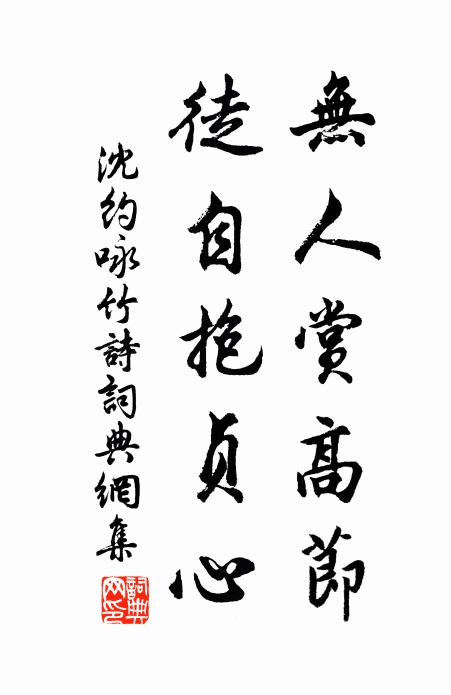 無人賞高節
徒自抱貞心
沈約咏竹詩詞典網集
詞典
网印